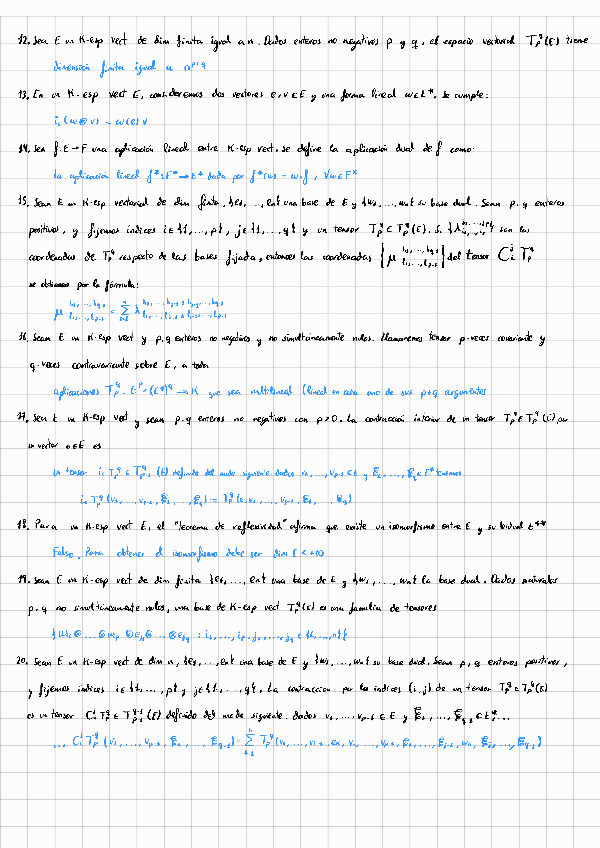 12. Sea E un K-esp vect de dim finita igual a n. Dados enteros no negativos p y q, el espacio vectorial T_p^q(E) tiene
dimensión finita igual a n^{p+q}
13. En un K-esp vect E, consideremos dos vectores e, v ∈ E y una forma lineal w ∈ E*. Se cumple:
i_e(w⊗v) = w(e)v
14. Sea f: E→F una aplicación lineal entre K-esp vect. Se define la aplicación dual de f como:
La aplicación lineal f*: F*→E* dada por f*(w) = w∘f, ∀w∈F*
15. Sean E un K-esp vectorial de dim finita, {e_1,...,e_n} una base de E y {w_1,...,w_n} su base dual. Sean p, q enteros
positivos, y fijemos indices i∈{1,...,p}, j∈{1,...,q} y un tensor T_p^q ∈ T_p^q(E). Si {λ} son las
coordenadas de T_p^q respecto de las bases fijada, entonces las coordenadas {μ} del tensor C_i^j T_p^q
se obtienen por la fórmula:
μ = Σ λ
16. Sean E un K-esp vect y p, q enteros no negativos y no simultáneamente nulos. Llamaremos tensor p-veces covariante y
q-veces contravariante sobre E, a toda
aplicaciones T_p^q: E^p×(E*)^q → K que sea multilineal (lineal en cada uno de sus p+q argumentos
17. Sea E un K-esp vect y sean p, q enteros no negativos con p>0. La contracción interior de un tensor T_p^q ∈ T_p^q(E) por
un vector e∈E es
un tensor i_e T_p^q ∈ T_{p-1}^q(E) definido del modo siguiente. dados v_1,...,v_{p-1} ∈ E y ξ_1,...,ξ_q ∈ E* tenemos
i_e T_p^q(v_1,...,v_{p-1}, ξ_1,...,ξ_q) := T_p^q(e, v_1,...,v_{p-1}, ξ_1,...,ξ_q)
18. Para un K-esp vect E, el "teorema de reflexividad" afirma que existe un isomorfismo entre E y su bidual E**
Falso. Para obtener el isomorfismo debe ser dim E < +∞
19. Sean E un K-esp vect de dim finita {e_1,...,e_n} una base de E y {w_1,...,w_n} la base dual. Dados naturales
p, q no simultáneamente nulos, una base de K-esp vect T_p^q(E) es una familia de tensores
{w_{i_1}⊗...⊗w_{i_p}⊗e_{j_1}⊗...⊗e_{j_q} : i_1,...,i_p, j_1,...,j_q ∈ {1,...,n}}
20. Sean E un K-esp vect de dim n, {e_1,...,e_n} una base de E y {w_1,...,w_n} su base dual. Sean p, q enteros positivos,
y fijemos indices i∈{1,...,p} y j∈{1,...,q}. La contraccion por los indices (i,j) de un tensor T_p^q ∈ T_p^q(E)
es un tensor C_i^j T_p^q ∈ T_{p-1}^{q-1}(E) definido del modo siguiente. Dados v_1,...,v_{p-1} ∈ E y ξ_1,...,ξ_{q-1} ∈ E*...
... C_i^j T_p^q(v_1,...,v_{p-1}, ξ_1,...,ξ_{q-1}) = Σ_{k=1}^n T_p^q(v_1,...,v_{i-1}, e_k, v_i,...,v_{p-1}, ξ_1,...,ξ_{j-1}, w_k, ξ_j,...,ξ_{q-1})